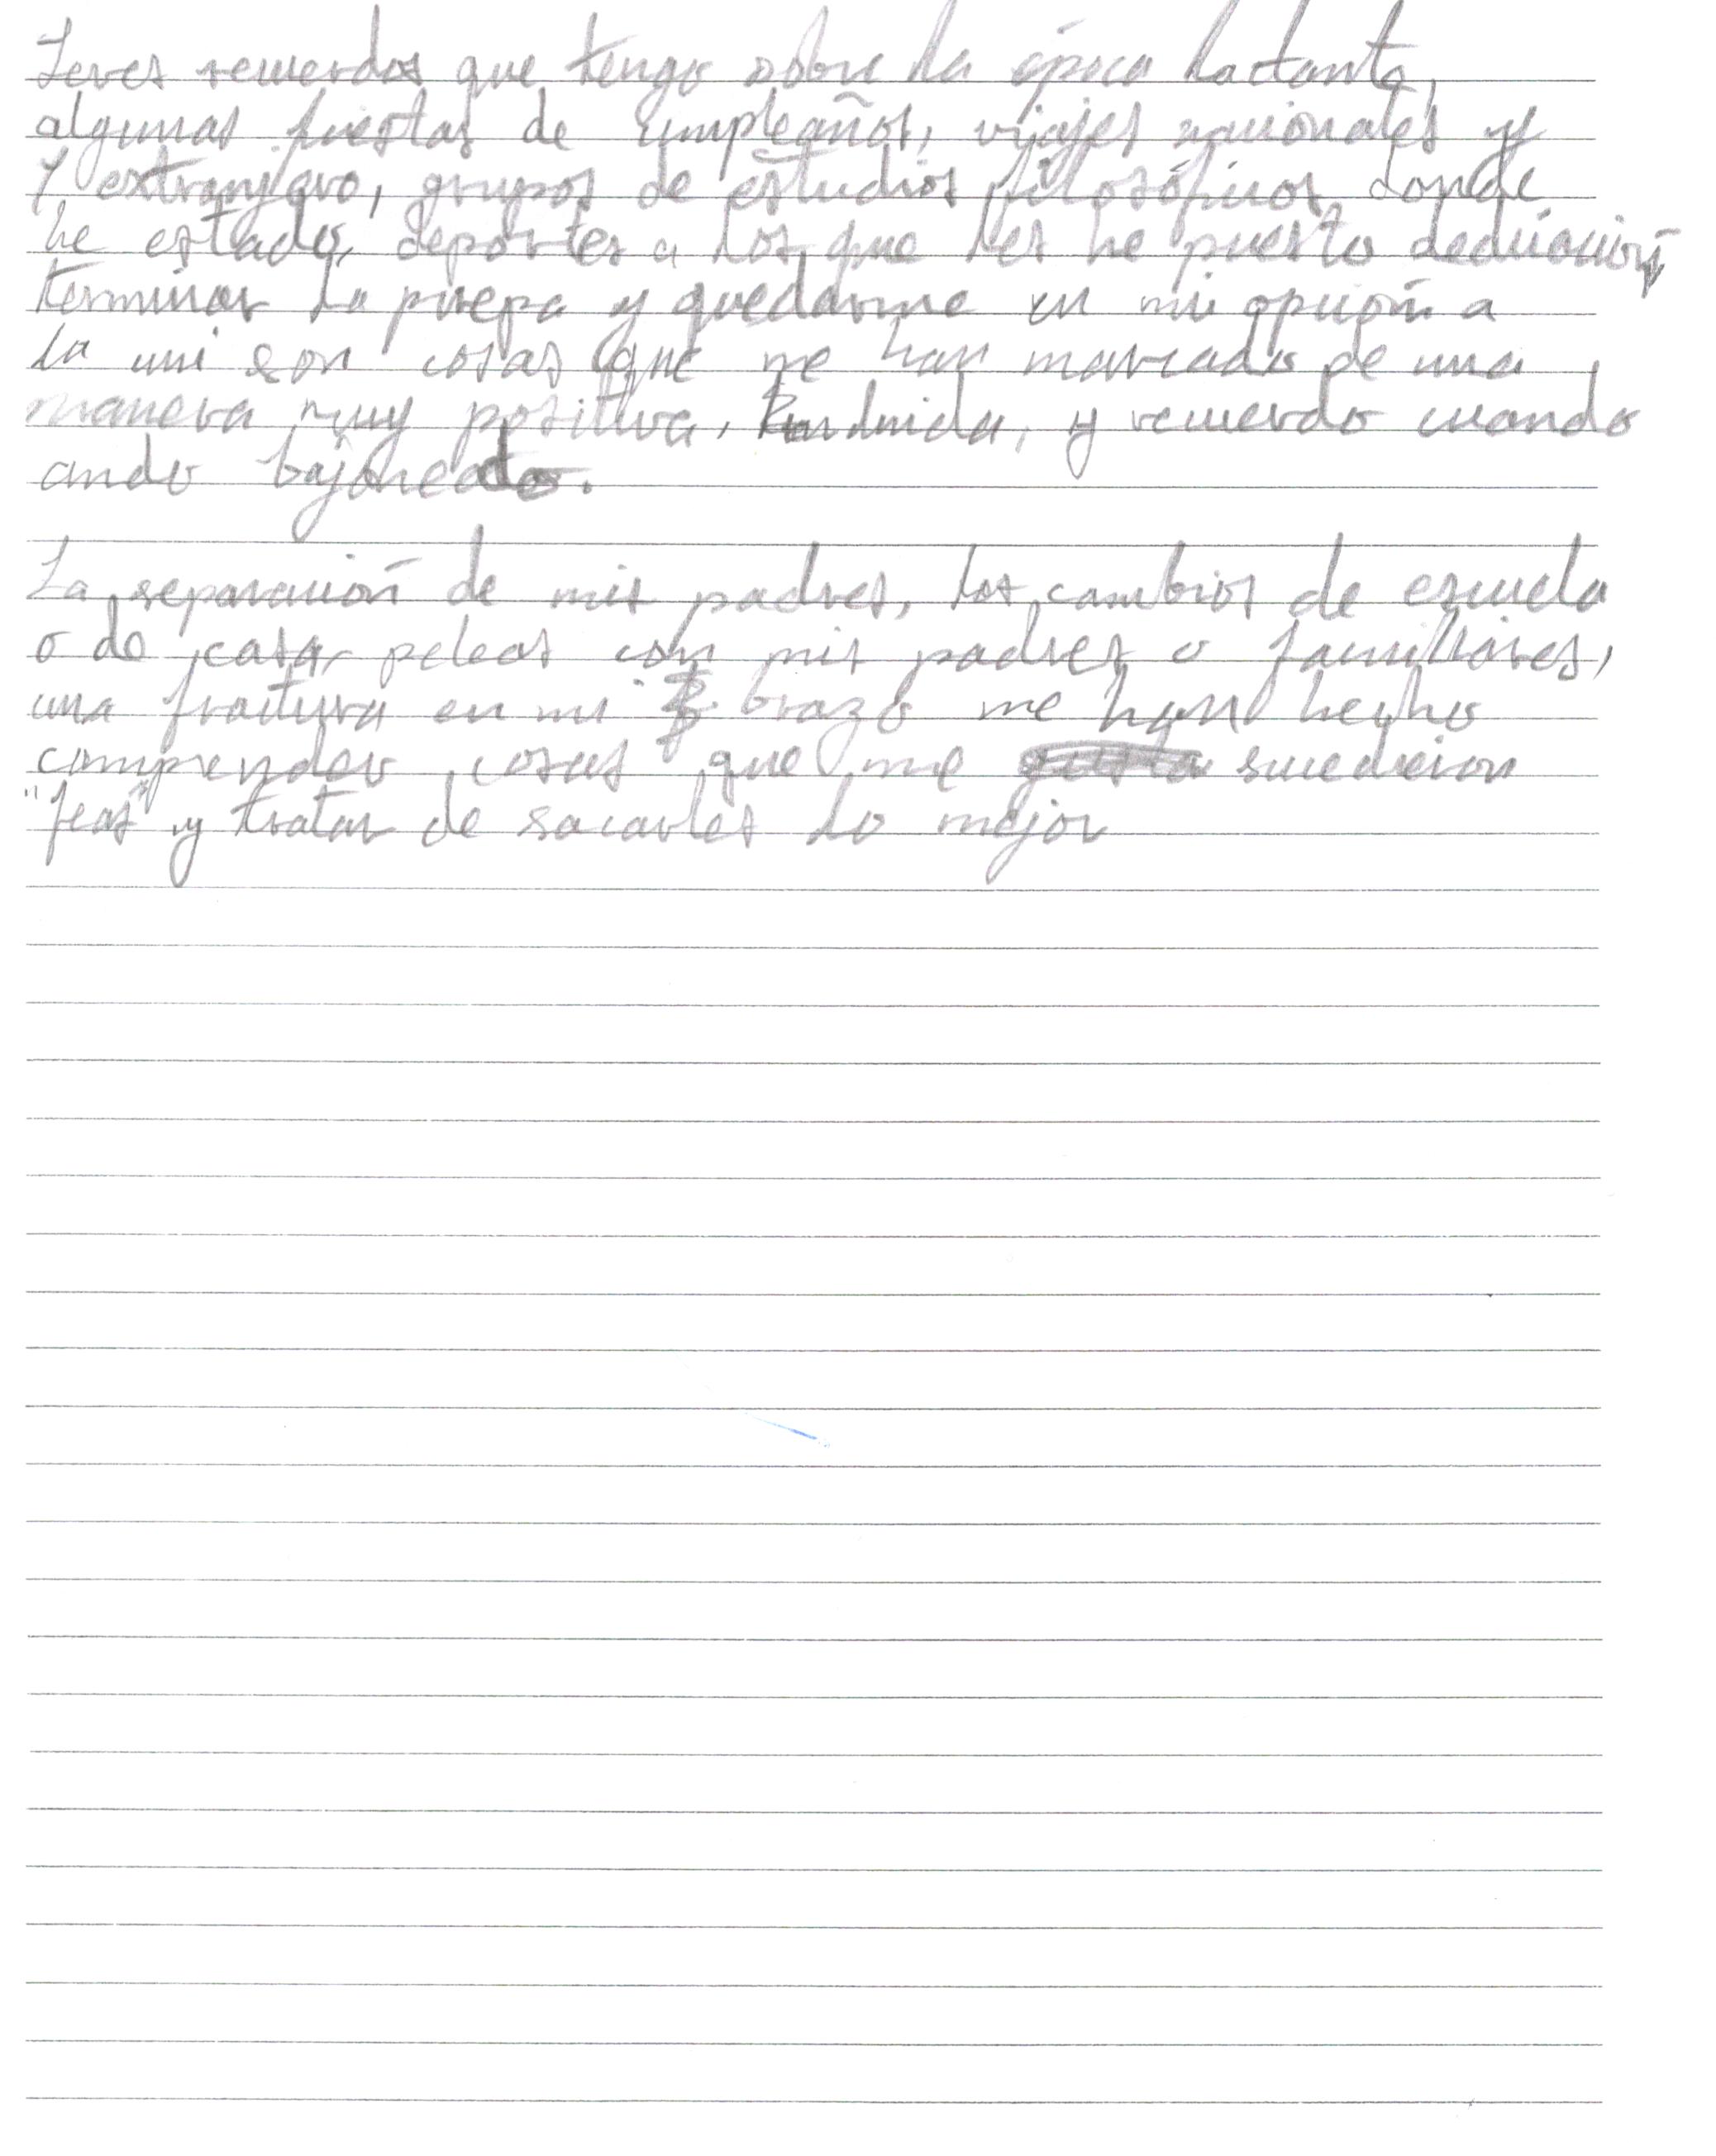 Leves recuerdos que tengo sobre la época lactante,
algunas fiestas de cumpleaños, viajes nacionales y
y extranjero, grupos de estudios filosóficos donde
he estado, deportes a los que les he puesto dedicación,
terminar la prepa y quedarme en mi opción a
la uni son cosas que me han marcado de una
manera muy positiva, y recuerdo cuando
ando bajoneado.
La separación de mis padres, los cambios de escuela
o de casa, peleas con mis padres o familiares,
una fractura en mi brazo me han hecho
comprender cosas que me sucedieron
"feas" y tratar de sacarles lo mejor